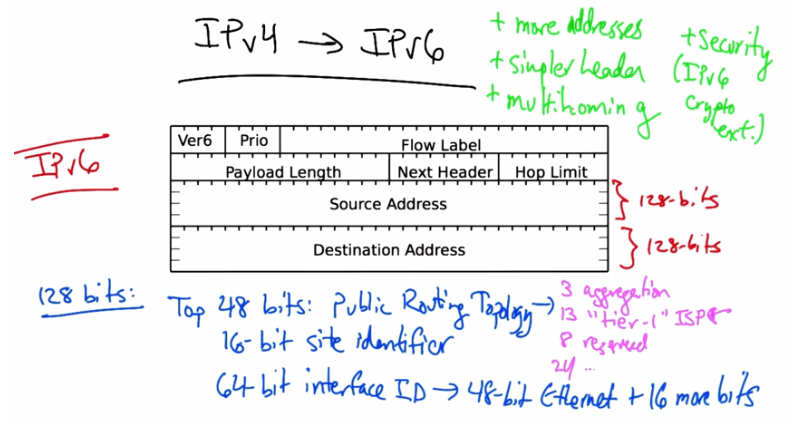 IPv4 → IPv6
+ more addresses
+ simpler header
+ multihoming
+ Security
(IPv6
Crypto
ext.)
IPv6
Ver6 Prio Flow Label
Payload Length Next Header Hop Limit
Source Address
128-bits
Destination Address
128-bits
128 bits:
Top 48 bits: Public Routing Topology →
3 aggregation
13 "tier-1" ISP ←
8 reserved
24 ...
16-bit site identifier
64-bit interface ID → 48-bit Ethernet + 16 more bits